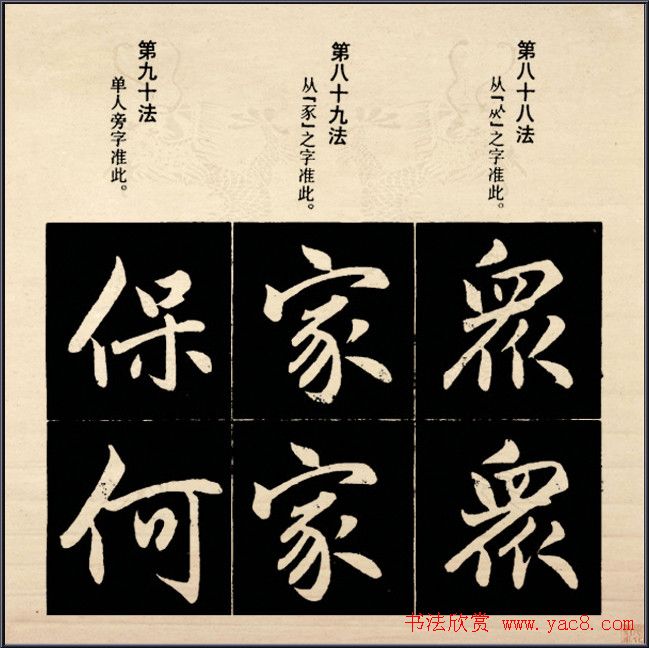 第八十八法
从「㐺」之字准此。
第八十九法
从「豕」之字准此。
第九十法
单人旁字准此。
眾
眾
家
家
保
何
书法欣赏 www.yac8.com